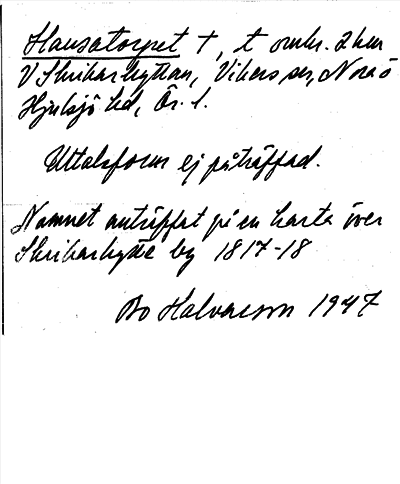 Hansatorpet †, t omkr. 2 km
V Skrikarhyttan, Vikers sn, Nora o
Hjulsjö hd, Ör. l.
Uttalsform ej påträffad.
Namnet anträffat på en karta över
Skrikarhytte by 1817-18
Bo Halvarson 1947